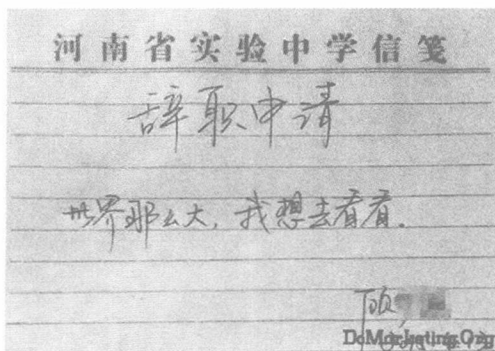 河南省实验中学信笺
辞职申请
世界那么大，我想去看看.
顾
DoMarketing.Org